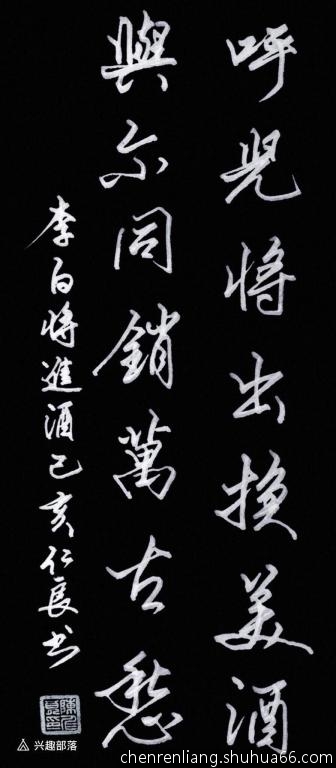 呼兒將出換美酒
與尔同銷萬古愁
李白將進酒己亥仁良书
兴趣部落
chenrenliang.shuhua66.com